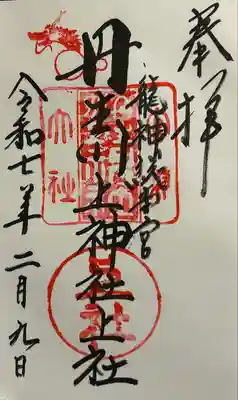 奉拝
龍神総本宮
丹生川上神社上社
令和七年二月九日